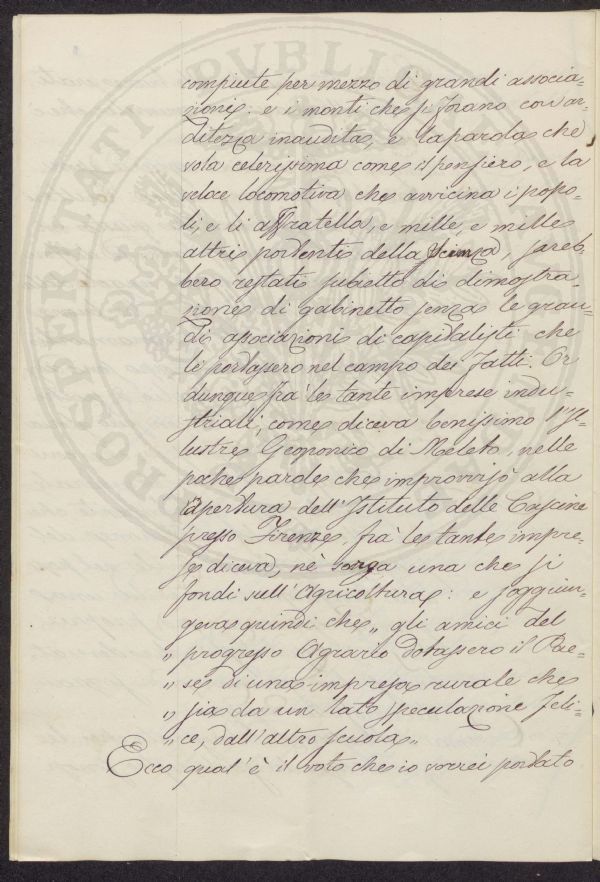 compiute per mezzo di grandi associa-
zioni: e i monti che si forano con ar-
ditezza inaudita, e la parola che
vola celerissima come il pensiero, e la
veloce locomotiva che avvicina i popo-
li, e li affratella, e mille, e mille
altri portenti della scienza, sareb-
bero restati subietto di dimostra-
zione di gabinetto senza le gran-
di associazioni di capitalisti che
le portassero nel campo dei fatti. Or
dunque fra le tante imprese indu-
striali, come diceva benissimo l'Il-
lustre Geoponico di Meleto, nelle
poche parole che improvvisò alla
apertura dell'Istituto delle Cascine
presso Firenze, fra le tante impre-
se diceva, nè sorga una che si
fondi sull'Agricoltura: e soggiun-
geva quindi che „ gli amici del
„ progresso Agrario dotassero il Pae-
„ se di una impresa rurale che
„ sia da un lato speculazione feli-
„ ce, dall'altro scuola „
Ecco qual'è il voto che io vorrei portato
PROSPERITATI PVBLICAE